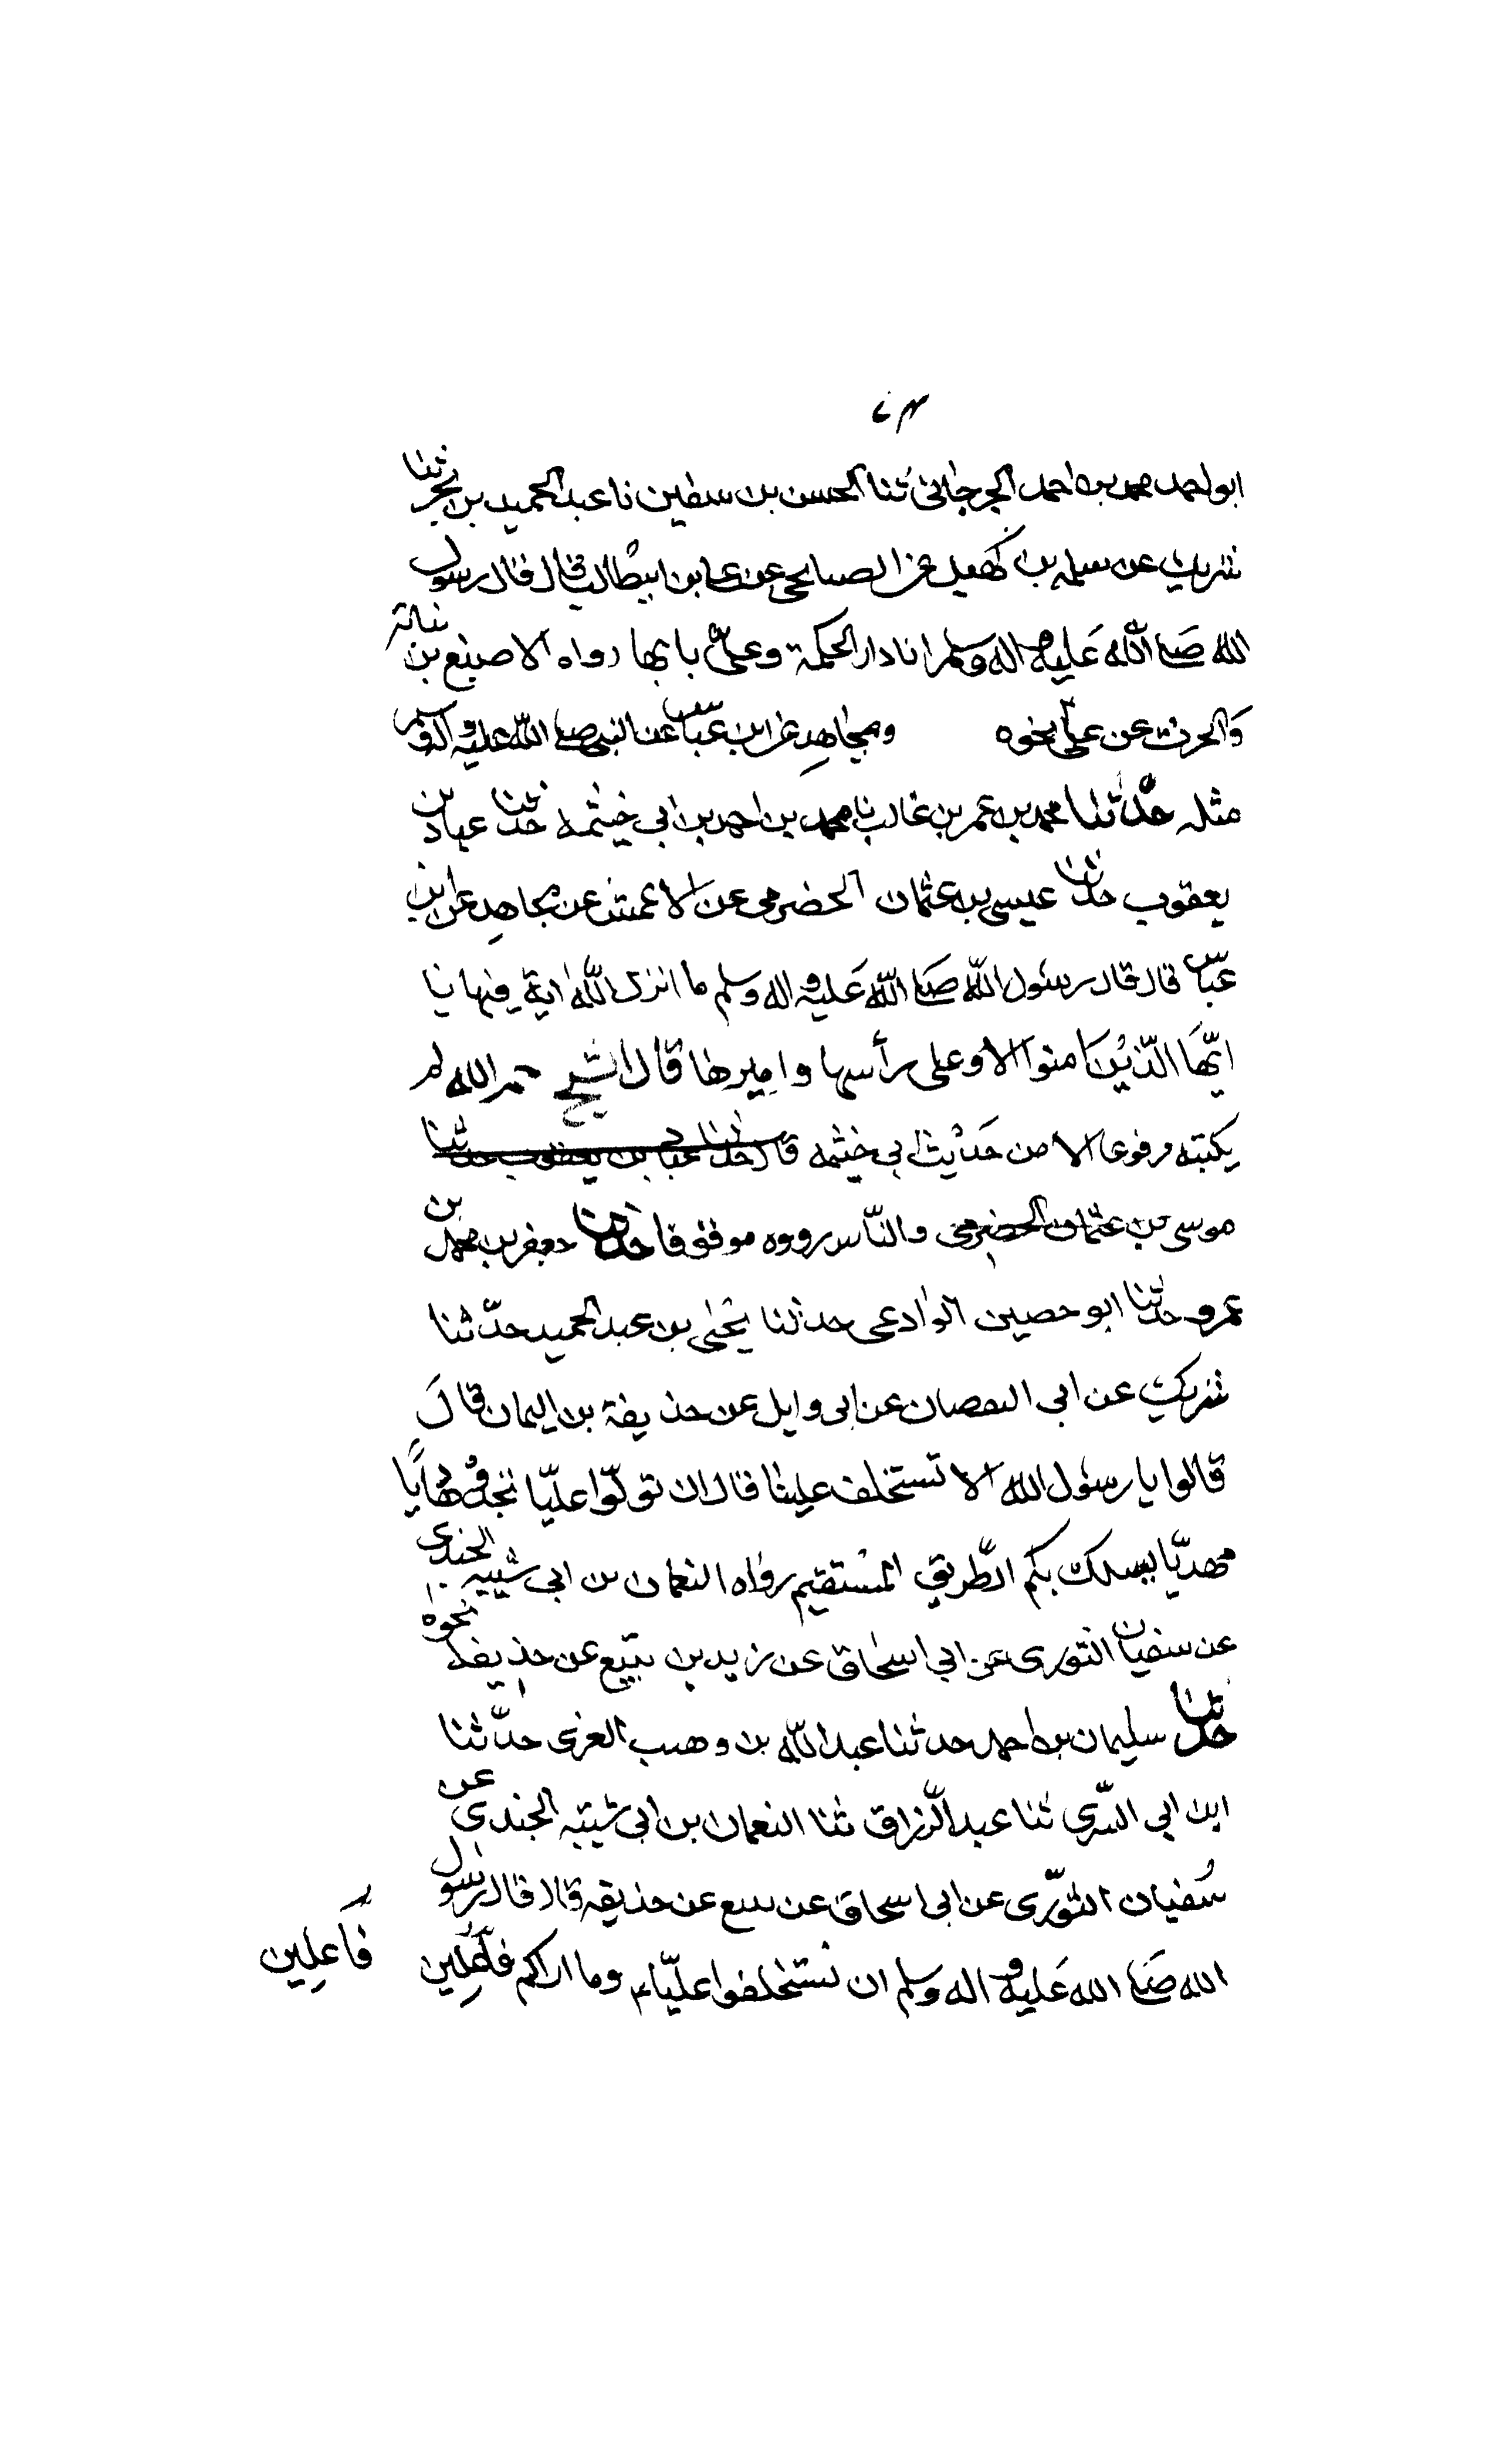 ابو احمد محمد بن احمد الجرجانی ثنا الحسن بن سفین نا عبد الحمید بن بحر ثنا
شریك عن سلمه بن كهیل عن الصنابحی عن علی بن ابیطالب قال قال رسول
الله صلی الله علیه و اله وسلم انا دار الحكمة وعلیّ بابها رواه الاصبغ بن نباتة
وَالحرث عن علی نحوه ومجاهدِ عن ابن عباس عن النبی صلی الله علیه و اله وسلم
مثله حدثنا محمد بن عمر بن غالب نا محمد بن احمد بن ابی خیثمه حدثنا عباد بن
یعقوب حدثنا عیسی بن عثمان الحضرمی عن الاعمش عن مجاهدِ عن ابن
عبّاس قال قال رسُول اللّه صَلی اللّه عَلیه و اله وسلم ما انزل اللّه اٰیة فیها یا
ایّهَا الّذیْنَ امنوا الا وعلی رأسها وامیرها قال الشیخ رحمه الله لم
یكتبه مرفوعا الا من حَدیْث ابی خیثمه قال حدثنا عباد بن یعقوب حدثنا
موسی بن عثمان الحضرمی والنّاس رووه موقوفا حدثنا جعفر بن محمد بن
عمرو حدثنا ابو حصین الوادعی حدثنا یحیٰی بن عبد الحمید حدّثنا
شریكٍ عن ابی الیقصان عن ابی وایل عن حذیفة بن الیمان قالَ
قالوا یا رسُول اللّه الا تستخلف علینا قال ان تولّوا علیّا تجدوه هادیًا
مهدیّا یسلك بكم الطّریق المسْتقیم رواه النعمان بن ابی شیبه الجندی
عن سفیان الثوری عن ابی اسحٰاق عن زید بن یثیع عن حذیفه نحوه
حدثنا سلیمان بن احمد حدثنا عبد اللّه بن وهیب الغزی حدّثنا
ابن ابی السّری ثنا عبد الرّزاق ثنا النعمان بن ابی شیبه الجندی عن
سُفیان الثّوری عن ابی اسحاق عن یثیع عن حذیفه قال قال رسول
الله صَلی الله عَلیه و اله وسلم ان تستخلفوا علیّا وما اراكم فاعِلِین فاعِلِین